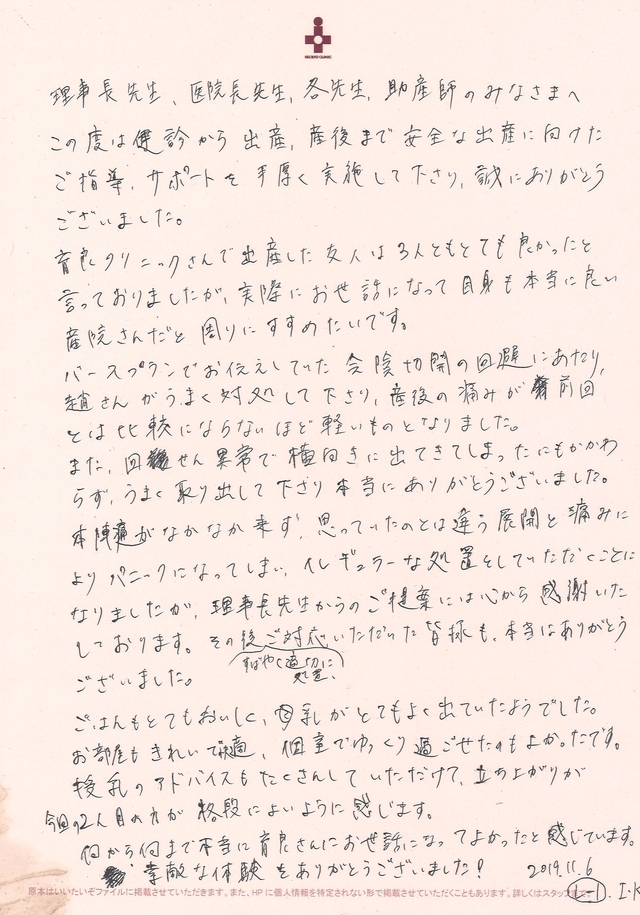 IKURYO CLINIC
理事長先生、医院長先生、各先生、助産師のみなさまへ
この度は健診から出産、産後まで安全な出産に向けた
ご指導、サポートを手厚く実施して下さり、誠にありがとう
ございました。
育良クリニックさんで出産した友人は3人ともとても良かったと
言っておりましたが、実際にお世話になって自身も本当に良い
産院さんだと周りにすすめたいです。
バースプランでお伝えしていた会陰切開の回避にあたり、
趙さんがうまく対処して下さり、産後の痛みが前回
とは比較にならないほど軽いものとなりました。
また、回せん異常で横向きに出てきてしまったにもかかわ
らず、うまく取り出して下さり本当にありがとうございました。
本陣痛がなかなか来ず、思っていたのとは違う展開と痛みに
よりパニックになってしまい、イレギュラーな処置をしていただくことに
なりましたが、理事長先生からのご提案には心から感謝いた
しております。その後ご対応いただいた皆様も、本当はありがとう
すばやく適切に
処置、
ございました。
ごはんもとてもおいしく、母乳がとてもよく出ていたようでした。
お部屋もきれいで快適、個室でゆっくり過ごせたのもよかったです。
授乳のアドバイスもたくさんしていただけて、立ち上がりが
今回の2人目の方が格段によいように感じます。
何から何まで本当に育良さんにお世話になってよかったと感じています。
素敵な体験をありがとうございました! 2019.11.6
I.K
原本はいいたいぞファイルに掲載させていただきます。また、HPに個人情報を特定されない形で掲載させていただくこともあります。詳しくはスタッフ